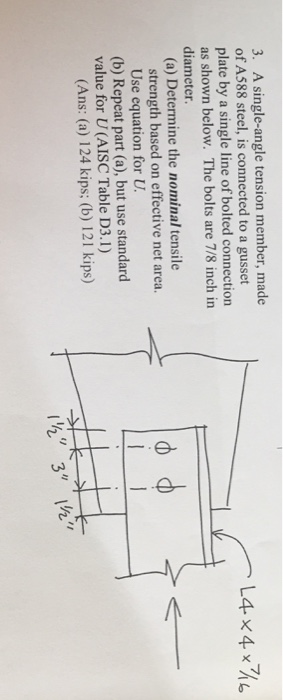 3. A single-angle tension member, made
of A588 steel, is connected to a gusset
plate by a single line of bolted connection
as shown below. The bolts are 7/8 inch in
diameter.
(a) Determine the nominal tensile
strength based on effective net area.
Use equation for U.
(b) Repeat part (a), but use standard
value for U (AISC Table D3.1)
(Ans: (a) 124 kips; (b) 121 kips)
L4 × 4 × 7/16
1½" 3" 1½"